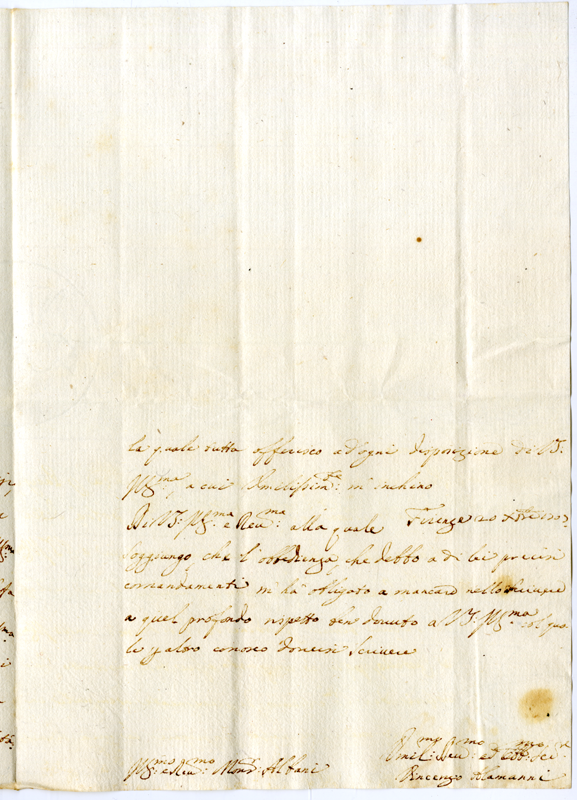 la quale tutta offerisco ad'ogni disposizione di V:
Ill:ma, a cui Umilissim:te m'inchino
Di V: Ill:ma e Reu:ma alla quale Firenze 20
soggiungo che l'obbedienza, che debbo a di lei precisi
comandamenti m'ha obligato a mancare nello scriuere
a quel profondo rispetto ben douuto a V: Ill:ma col qua
le p altro conosco douersi scriuere
Ill:mo e Reu:mo Mons: Albani
Umil:mo Deu:mo ed Obb:mo Ser:re
Vincenzo Alamanni